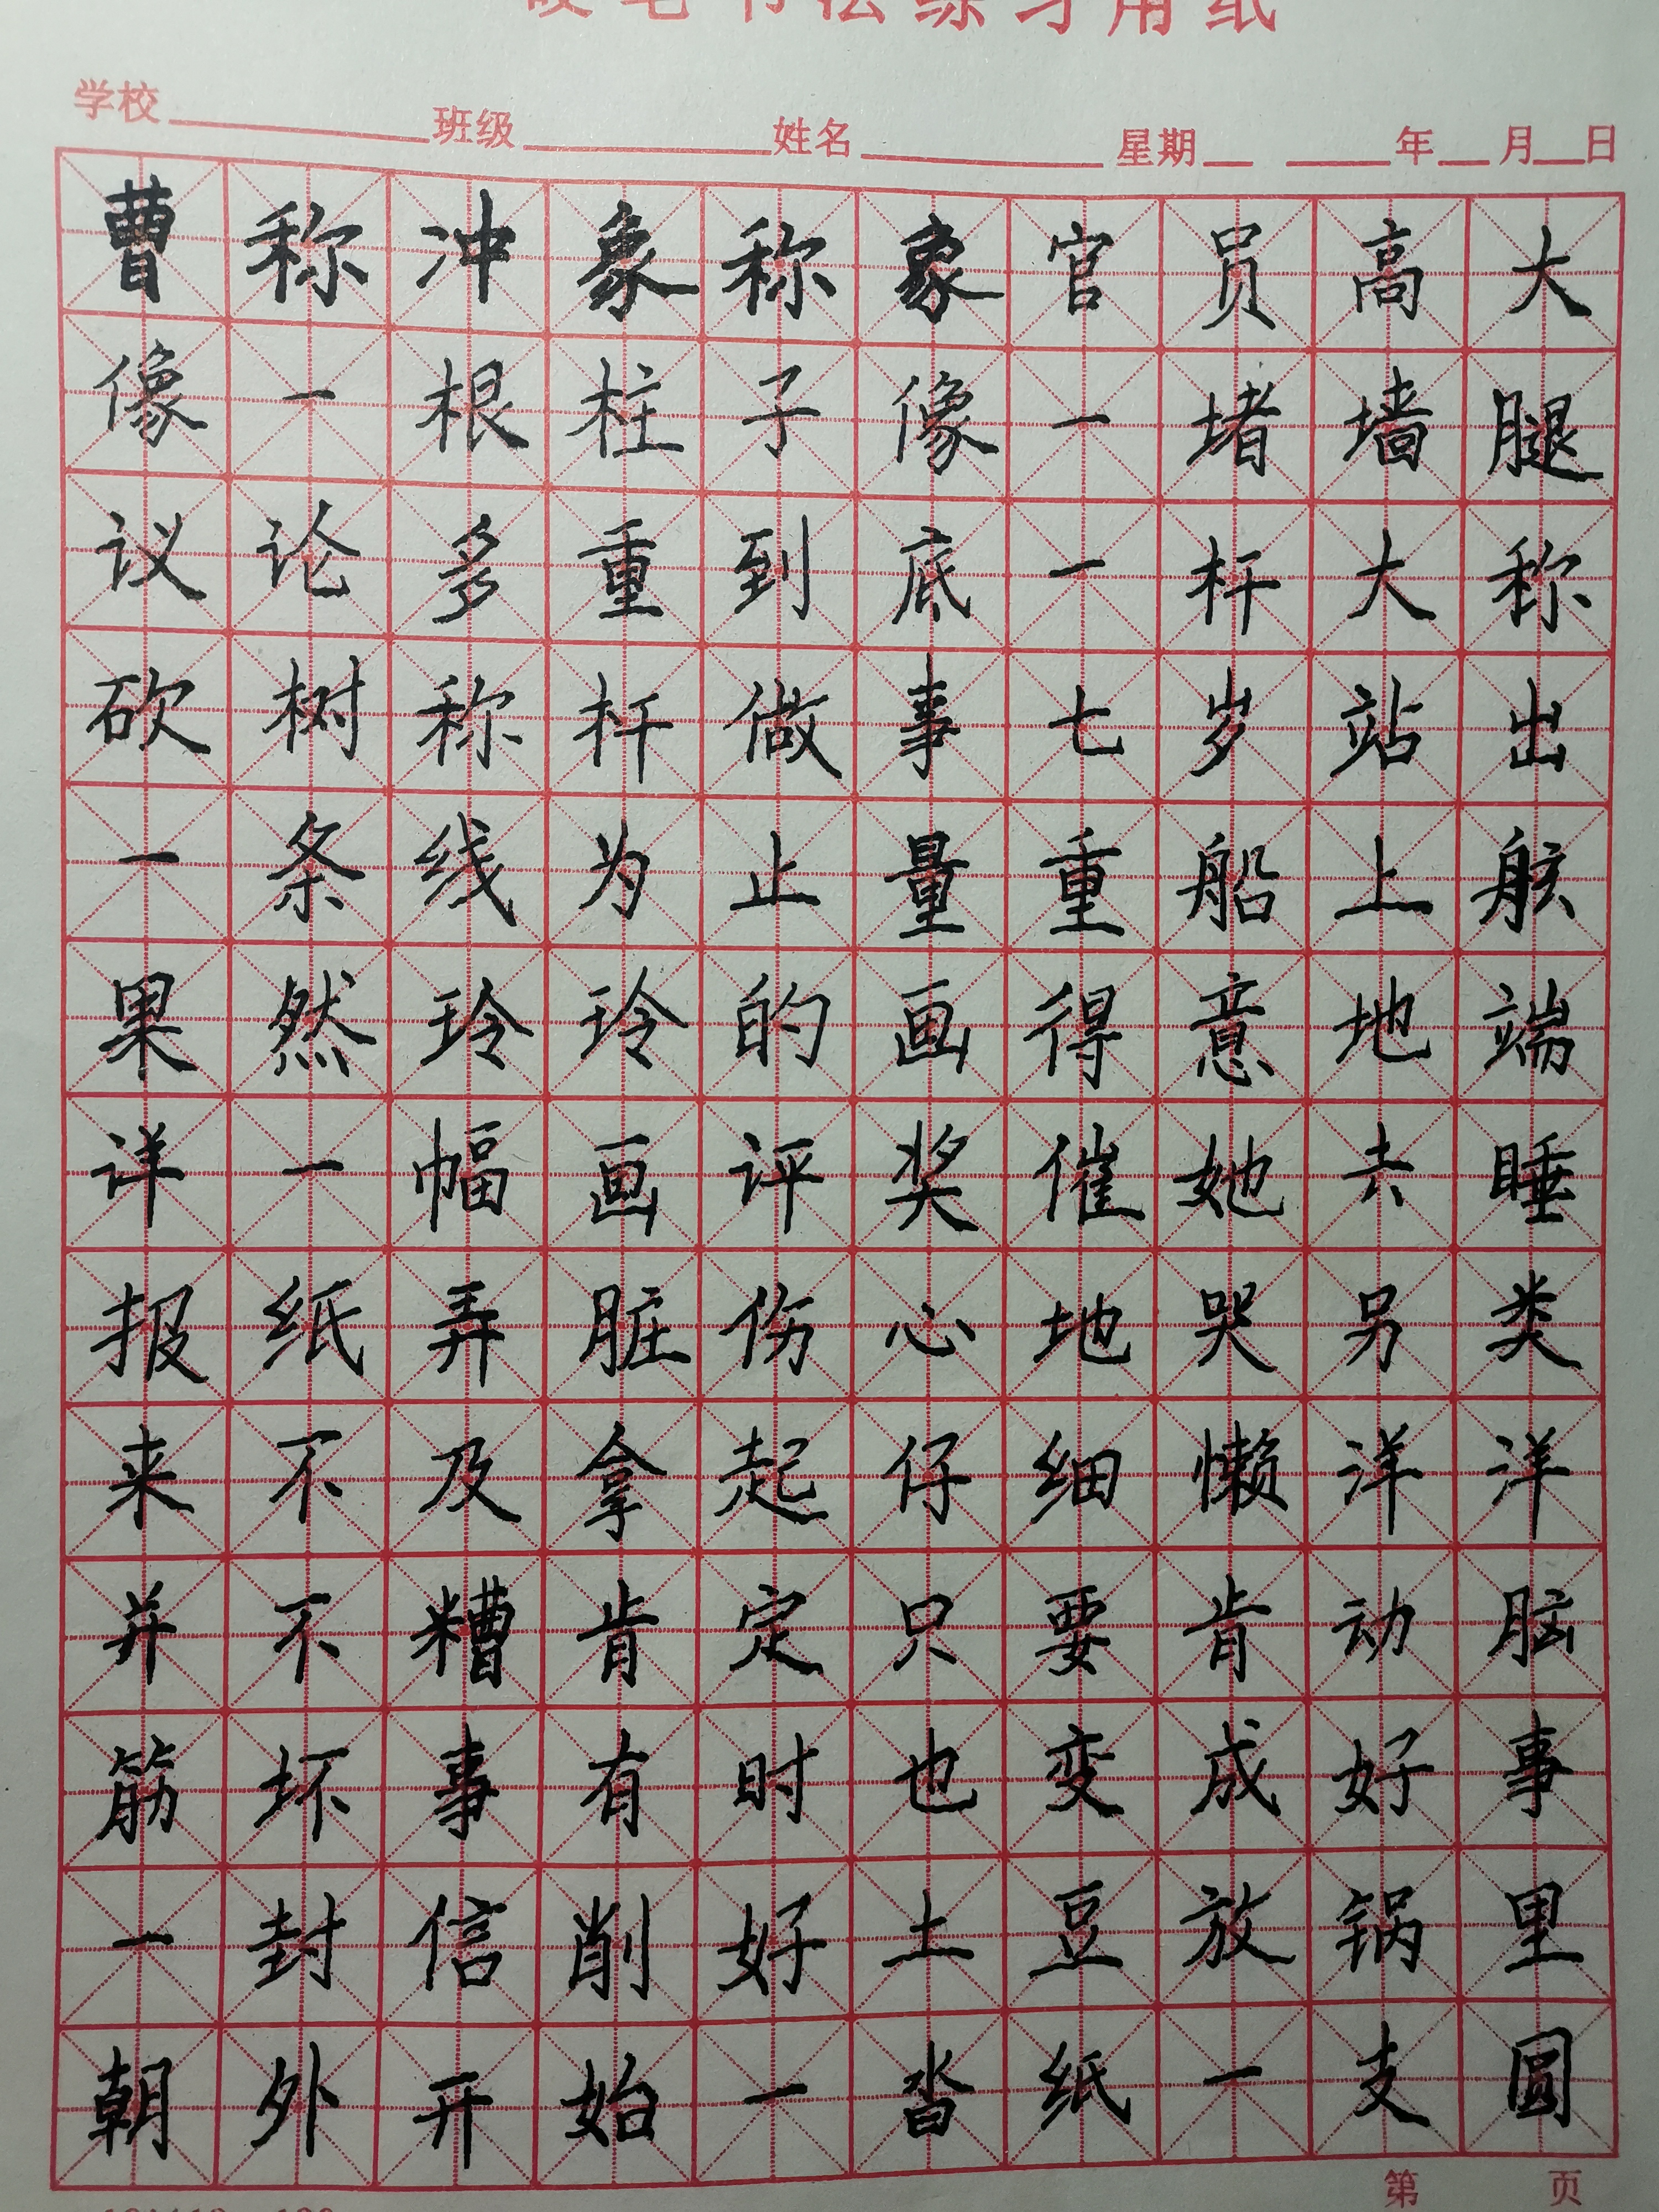 硬笔书法练习用纸
学校 班级 姓名 星期 年 月 日
曹称冲象称象官员高大
像一根柱子像一堵墙腿
议论多重到底一杆大称
砍树称杆做事七岁站出
一条线为止量重船上舷
果然玲玲的画得意地端
详一幅画评奖催她去睡
报纸弄脏伤心地哭另类
来不及拿起仔细懒洋洋
并不糟肯定只要肯动脑
筋坏事有时也变成好事
一封信削好土豆放锅里
朝外开始一沓纸一支圆
第 页